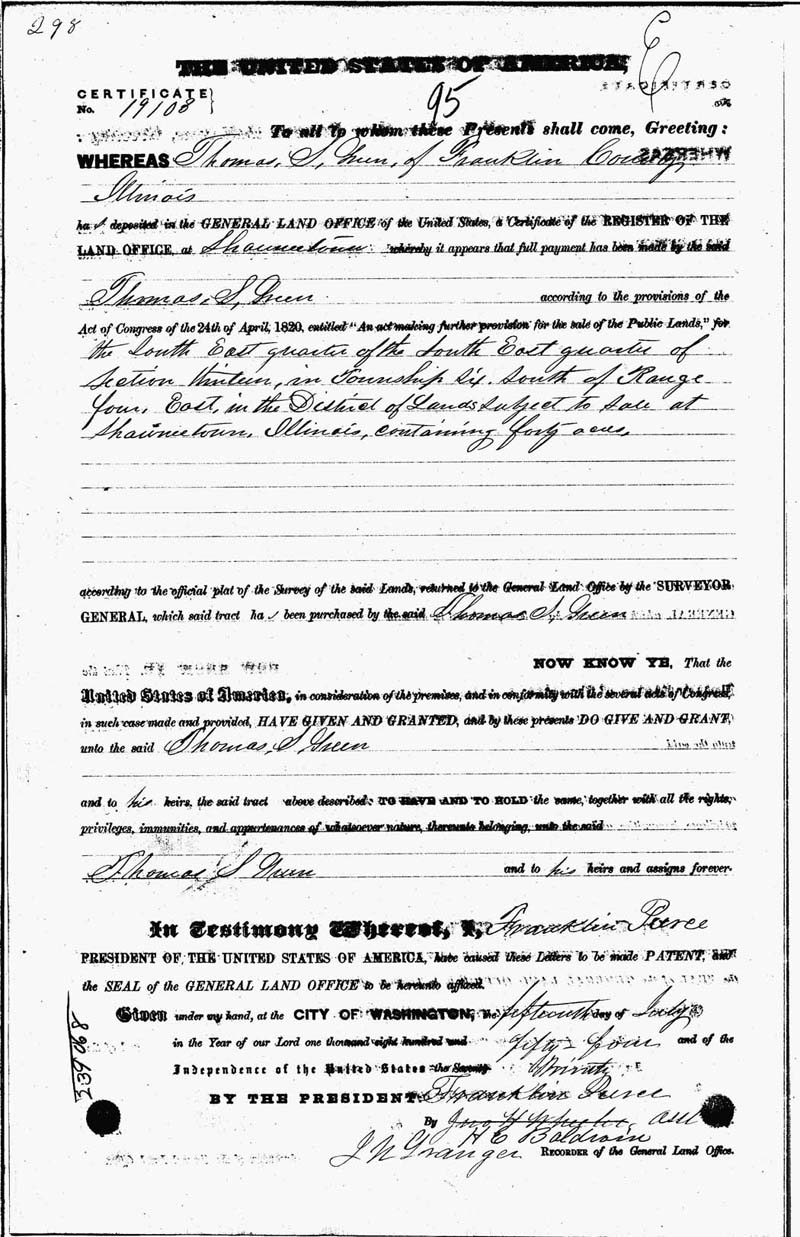 298
THE UNITED STATES OF AMERICA,
CERTIFICATE
No. 19108
95
To all to whom these Presents shall come, Greeting:
WHEREAS Thomas, S, Green, of Franklin County,
Illinois
has deposited in the GENERAL LAND OFFICE of the United States, a Certificate of the REGISTER OF THE
LAND OFFICE, at Shawneetown whereby it appears that full payment has been made by the said
Thomas, S, Green according to the provisions of the
Act of Congress of the 24th of April, 1820, entitled "An act making further provision for the sale of the Public Lands," for
the South East quarter of the South East quarter of
Section thirteen, in Township Six. South of Range
four, East, in the District of Lands subject to sale at
Shawneetown, Illinois, containing forty acres,
according to the official plat of the Survey of the said Lands, returned to the General Land Office by the SURVEYOR
GENERAL, which said tract has been purchased by the said Thomas S, Green
NOW KNOW YE, That the
United States of America, in consideration of the premises, and in conformity with the several acts of Congress,
in such case made and provided, HAVE GIVEN AND GRANTED, and by these presents DO GIVE AND GRANT,
unto the said Thomas, S Green
and to his heirs, the said tract above described: TO HAVE AND TO HOLD the same, together with all the rights,
privileges, immunities, and appurtenances of whatsoever nature, thereunto belonging, unto the said
Thomas S Green and to his heirs and assigns forever.
In Testimony Whereof, I, Franklin Pierce
PRESIDENT OF THE UNITED STATES OF AMERICA, have caused these Letters to be made PATENT, and
the SEAL of the GENERAL LAND OFFICE to be hereunto affixed.
Given under my hand, at the CITY OF WASHINGTON, the fifteenth day of July
in the Year of our Lord one thousand eight hundred and fifty-four and of the
Independence of the United States the Seventy
239068
BY THE PRESIDENT: Franklin Pierce
By
H C Baldwin
J N Granger RECORDER of the General Land Office.